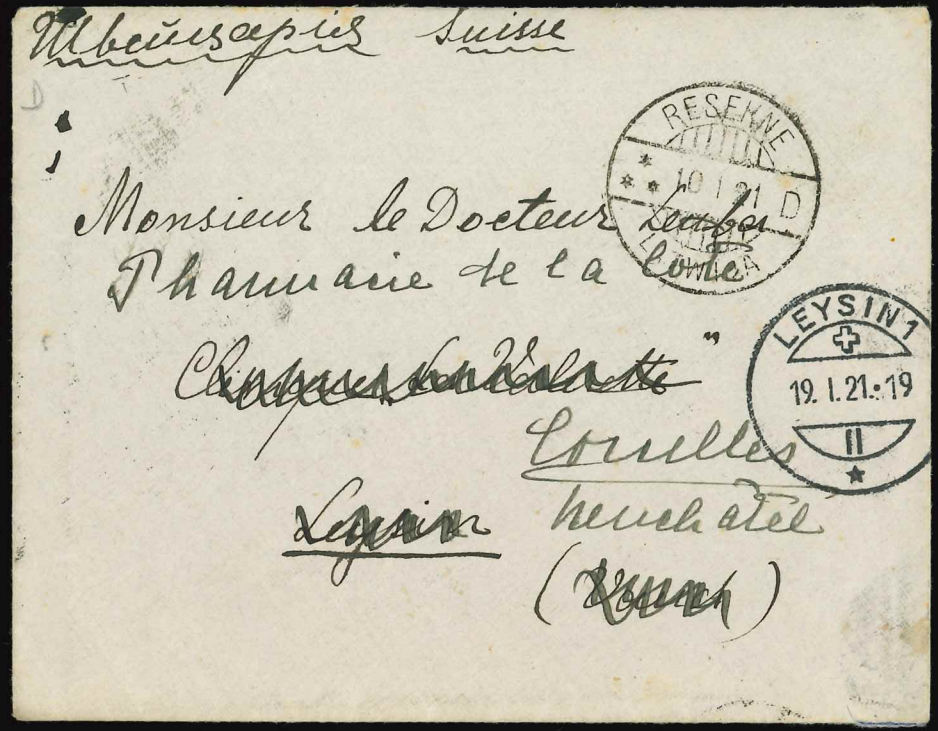 Швейцарія Suisse
RESEKNE
10 I 21 D
LATWIJA
Monsieur le Docteur Leuba
Pharmacie de la Côte
LEYSIN 1
19. I. 21.-19
II
Clinique La Violette "
Corcelles
Leysin
Neuchâtel
(Vaud)